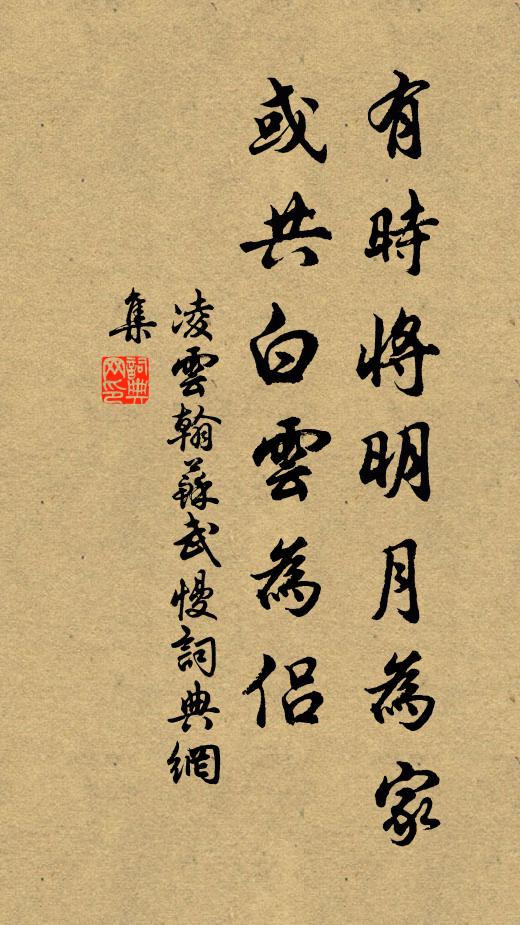 有時將明月為家
或共白雲為侶
凌雲翰蘇武慢詞典網
集
詞典
网印